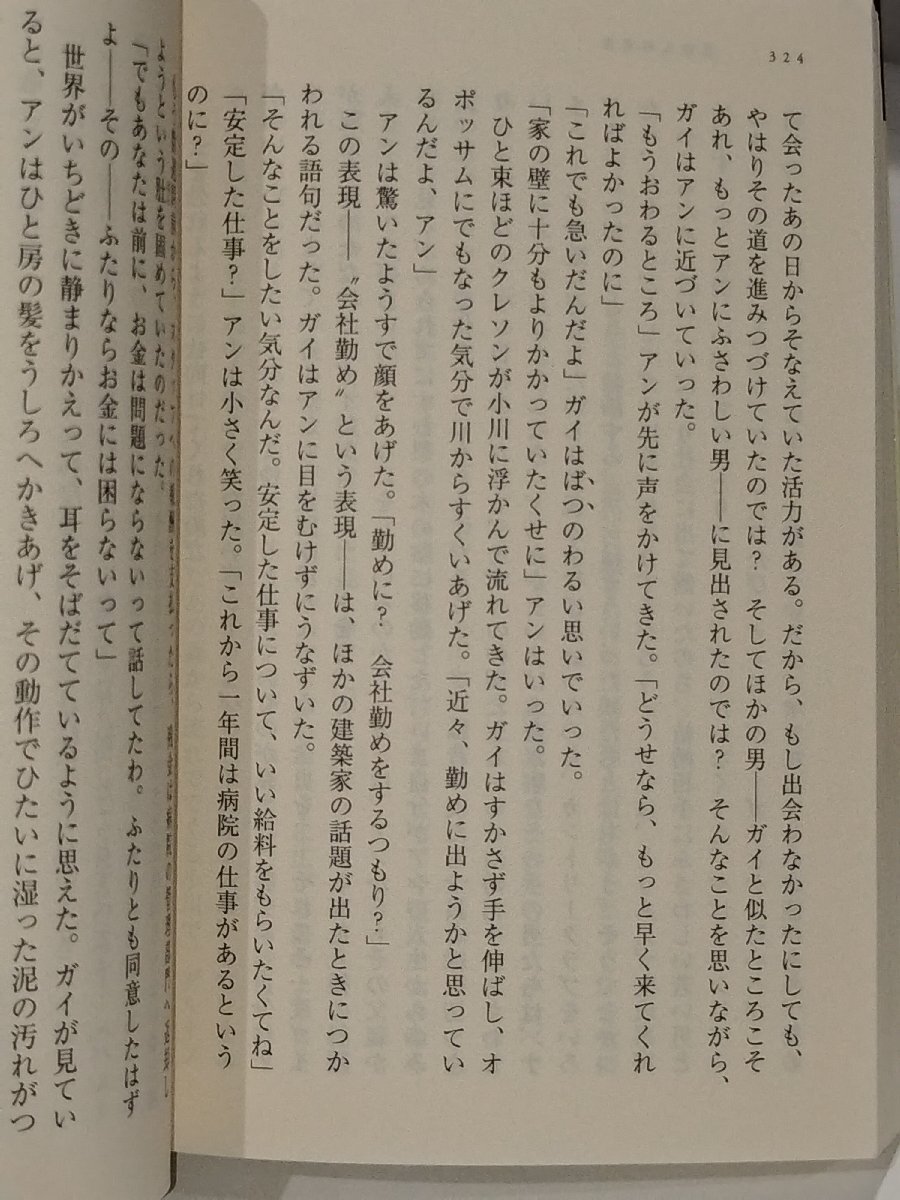 324
て会ったあの日からそなえていた活力がある。だから、もし出会わなかったにしても、
やはりその道を進みつづけていたのでは? そしてほかの男――ガイと似たところこそ
あれ、もっとアンにふさわしい男――に見出されたのでは? そんなことを思いながら、
ガイはアンに近づいていった。
「もうおわるところ」アンが先に声をかけてきた。「どうせなら、もっと早く来てくれ
ればよかったのに」
「これでも急いだんだよ」ガイはばつのわるい思いでいった。
「家の壁に十分もよりかかっていたくせに」アンはいった。
ひと束ほどのクレソンが小川に浮かんで流れてきた。ガイはすかさず手を伸ばし、オ
ポッサムにでもなった気分で川からすくいあげた。「近々、勤めに出ようかと思ってい
るんだよ、アン」
アンは驚いたようすで顔をあげた。「勤めに? 会社勤めをするつもり?」
この表現――〝会社勤め〟という表現――は、ほかの建築家の話題が出たときにつか
われる語句だった。ガイはアンに目をむけずにうなずいた。
「そんなことをしたい気分なんだ。安定した仕事について、いい給料をもらいたくてね」
「安定した仕事?」アンは小さく笑った。「これから一年間は病院の仕事があるという
のに?」
ようという肚を固めていたのだった。
「でもあなたは前に、お金は問題にならないって話してたわ。ふたりとも同意したはず
よ――その――ふたりならお金には困らないって」
世界がいちどきに静まりかえって、耳をそばだてているように思えた。ガイが見てい
ると、アンはひと房の髪をうしろへかきあげ、その動作でひたいに湿った泥の汚れがつ